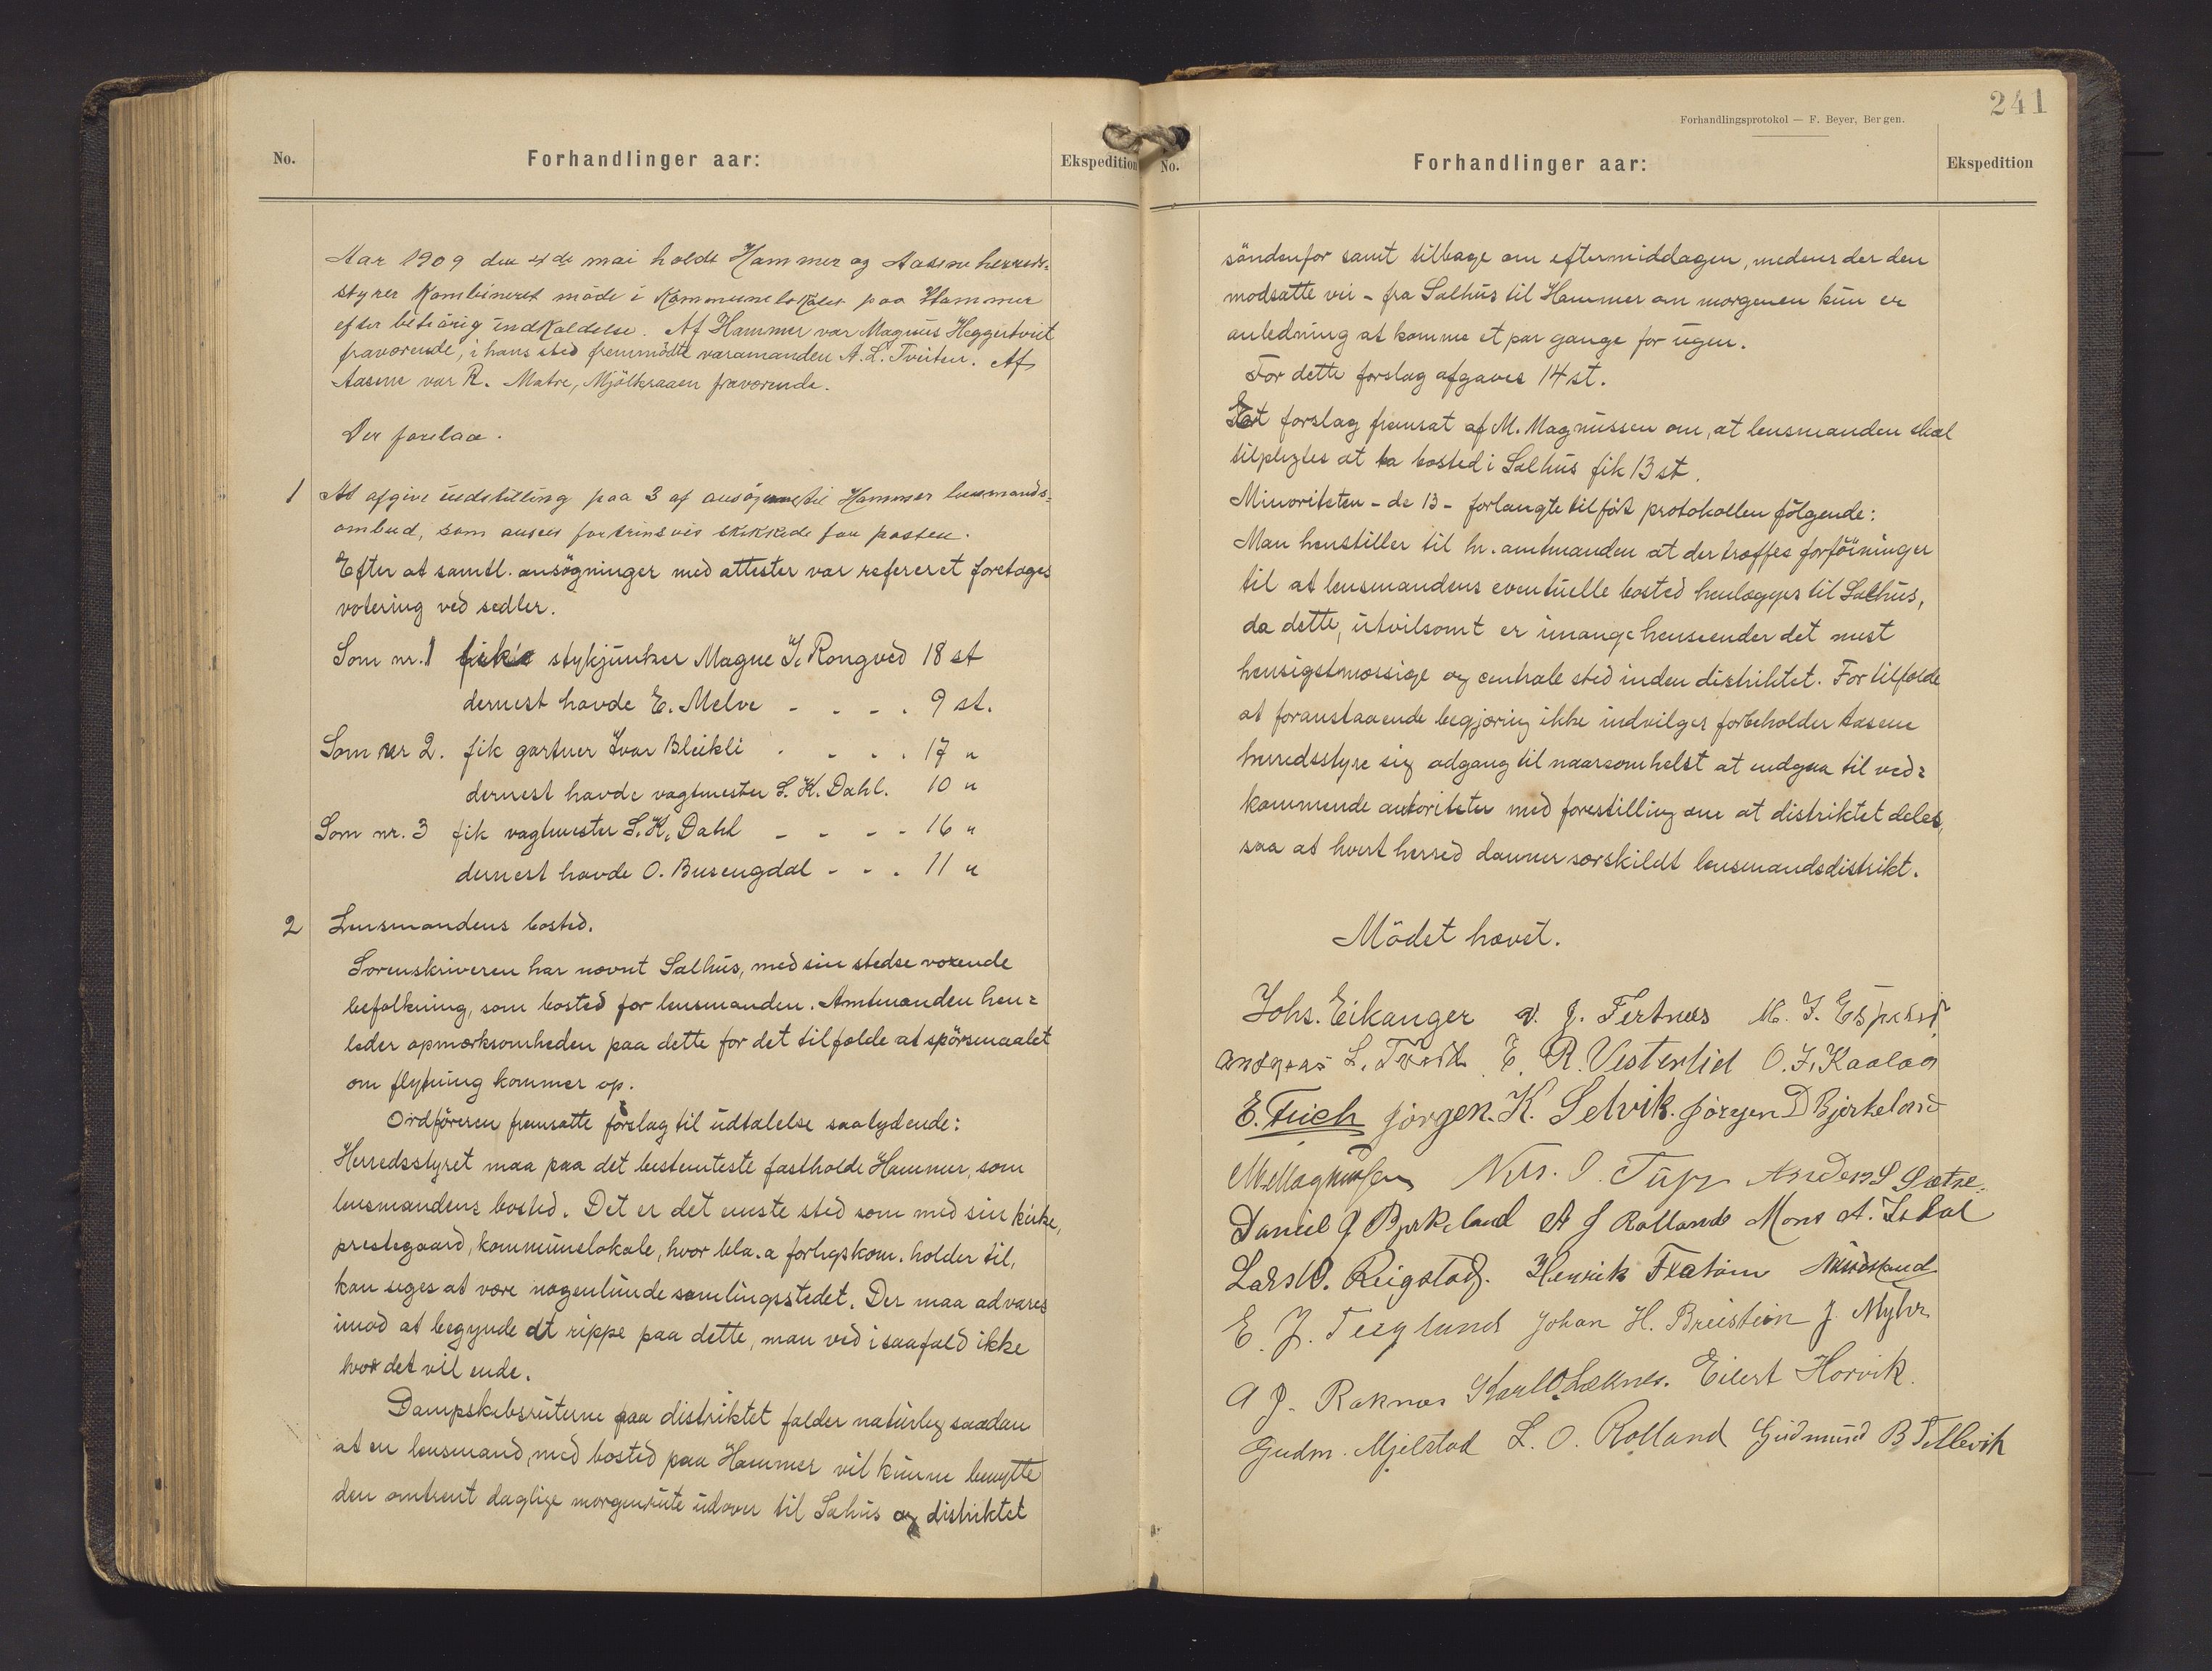 No.
Forhandlinger aar:
Ekspedition
Aar 1909 den 4de mai holdt Hammer og Aasene herreds-
styrer kombineret möde i kommunelokalet paa Hammer
efter behörig indkaldelse. Af Hammer var Magnus Heggertveit
fraværende, i hans sted fremmödte varamanden A. L. Tveiten. Af
Aasene var R. Matre, Mjölkeraaen fraværende.
Der forelaa.
1 At afgive indstilling paa 3 af ansögerne til Hammer lensmands-
ombud, som ansees fortrinsvis skikkede for posten.
Efter at samtl. ansögninger med attester var refereret foretoges
votering ved sedler.
Som nr. 1 fik stykjunker Magne J. Rongved 18 st
dernest havde E. Melve - - - . 9 st.
Som nr 2. fik gartner Ivar Bleikli . - . . 17 "
dernest havde vagtmester S. K. Dahl. 10 "
Som nr. 3 fik vagtmester S. K. Dahl - - - - 16 "
dernest havde O. Busengdal - - . 11 "
2 Lensmandens bosted.
Sorenskriveren har nævnt Salhus, med sin stedse voxende
befolkning, som bosted for lensmanden. Amtmanden hen=
leder opmærksomheden paa dette for det tilfælde at spörsmaalet
om flytning kommer op.
Ordföreren fremsatte forslag til udtalelse saalydende:
Herredsstyret maa paa det bestemteste fastholde Hammer, som
lensmandens bosted. Det er det eneste sted som med sin kirke,
prestegaard, kommunelokale, hvor bla. a forligskom. holder til,
kan siges at være nogenlunde samlingsstedet. Der maa advares
imod at begynde at rippe paa dette, man ved i saafald ikke
hvor det vil ende.
Dampskibsruterne paa distriktet falder naturlig saadan
at en lensmand, med bosted paa Hammer vil kunne benytte
den omtrent daglige morgenrute udover til Salhus og distriktet
241
Forhandlingsprotokol — F. Beyer, Bergen.
No.
Forhandlinger aar:
Ekspedition
söndenfor samt tilbage om eftermiddagen, medens der den
modsatte vei - fra Salhus til Hammer om morgenen kun er
anledning at komme et par gange for ugen.
For dette forslag afgaves 14 st.
Et forslag fremsat af M. Magnussen om, at lensmanden skal
tilpligtes at ta bosted i Salhus fik 13 st.
Minoriteten - de 13 - forlangte tilföt protokollen fölgende:
Man henstiller til hr. amtmanden at der træffes forföininger
til at lensmandens eventuelle bosted henlægges til Salhus,
da dette, utvilsomt er i mange henseender det mest
hensigtmæssige og centrale sted inden distriktet. For tilfælde
at foranstaaende begjæring ikke indvilges forbeholder Aasene
herredsstyre sig adgang til naarsomhelst at indgaa til ved=
kommende autoriteter med forestilling om at distriktet deles,
saa at hvert herred danner særskildt lensmandsdistrikt.
Mödet hævet.
Johs. Eikanger A. J. Tertnæs M. J. Espelid
Anders L. Tveit E. R. Vesterlid O. J. Kaalaas
E. Frich Jörgen. K. Selvik. Jörgen D Bjerkeland
M. Magnussen Nils. O. Anders S Sætre.
Daniel J Bjrkeland A J Rolland Mons A.
Lars O. Reigstad. Henrik Flatöin
E. J. Teigland Johan H. Breistein J. Myhr
A J. Raknes Karl O. Leknes. Eilert Horvik.
Gudm. Mjelstad L. O. Rolland Gudmund B Tellevik